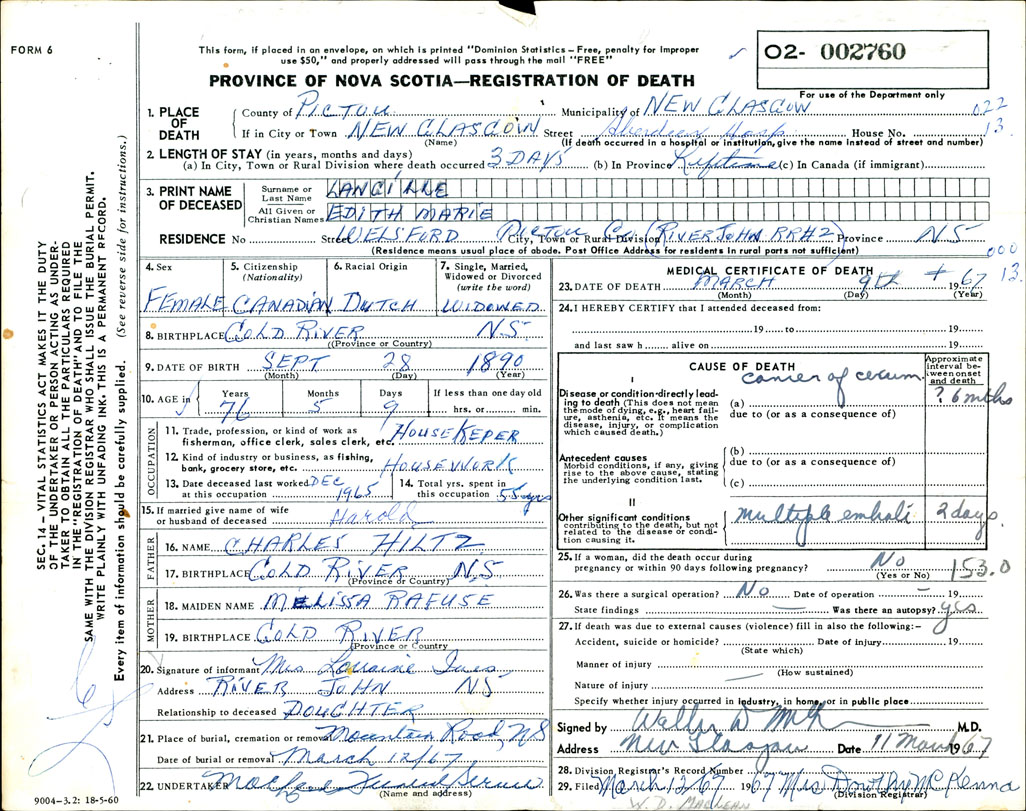 FORM 6
This form, if placed in an envelope, on which is printed "Dominion Statistics – Free, penalty for improper
use $50," and properly addressed will pass through the mail "FREE"
O2- 002760
For use of the Department only
PROVINCE OF NOVA SCOTIA—REGISTRATION OF DEATH
1. PLACE OF DEATH County of PICTOU Municipality of NEW GLASGOW 022
If in City or Town NEW GLASGOW Street Aberdeen Hosp House No. 13
(Name) (If death occurred in a hospital or institution, give the name instead of street and number)
2. LENGTH OF STAY (in years, months and days)
(a) In City, Town or Rural Division where death occurred 3 DAYS (b) In Province Lifetime (c) In Canada (if immigrant)
3. PRINT NAME OF DECEASED Surname or Last Name LANGILLE
All Given or Christian Names EDITH MARIE
RESIDENCE No Street WELSFORD PICTOU CO. City, Town or Rural Division (RIVER JOHN RR#2) Province NS
(Residence means usual place of abode. Post Office Address for residents in rural parts not sufficient)
000
13
4. Sex 5. Citizenship (Nationality) 6. Racial Origin 7. Single, Married, Widowed or Divorced (write the word)
FEMALE CANADIAN DUTCH WIDOWED
8. BIRTHPLACE GOLD RIVER N.S.
(Province or Country)
9. DATE OF BIRTH SEPT 28 1890
(Month) (Day) (Year)
10. AGE in Years Months Days If less than one day old
76 5 9 hrs. or min.
OCCUPATION
11. Trade, profession, or kind of work as fisherman, office clerk, sales clerk, etc. HOUSE KEPER
12. Kind of industry or business, as fishing, bank, grocery store, etc. HOUSEWORK
13. Date deceased last worked at this occupation DEC 1965
14. Total yrs. spent in this occupation 55 yrs
15. If married give name of wife or husband of deceased Harold
FATHER
16. NAME CHARLES HILTZ
17. BIRTHPLACE GOLD RIVER N.S
(Province or Country)
MOTHER
18. MAIDEN NAME MELISSA RAFUSE
19. BIRTHPLACE GOLD RIVER
(Province or Country
20. Signature of informant Mrs Lorraine
Address RIVER JOHN NS
Relationship to deceased DOUGHTER
21. Place of burial, cremation or removal Mountain Road, NS
Date of burial or removal March 12/67
22. UNDERTAKER Funeral Service
(Name and address)
MEDICAL CERTIFICATE OF DEATH
23. DATE OF DEATH MARCH 9th 1967
(Month) (Day) (Year)
24. I HEREBY CERTIFY that I attended deceased from:
19 to 19
and last saw h alive on 19
CAUSE OF DEATH
Approximate interval between onset and death
I
Disease or condition directly leading to death (This does not mean the mode of dying, e.g., heart failure, asthenia, etc. It means the disease, injury, or complication which caused death.)
(a) cancer of cecum ? 6 mths
due to (or as a consequence of)
Antecedent causes
Morbid conditions, if any, giving rise to the above cause, stating the underlying condition last.
(b)
due to (or as a consequence of)
(c)
II
Other significant conditions contributing to the death, but not related to the disease or condition causing it.
multiple emboli 2 days.
25. If a woman, did the death occur during pregnancy or within 90 days following pregnancy? No
(Yes or No)
153.0
26. Was there a surgical operation? No Date of operation — 19
State findings — Was there an autopsy? yes
27. If death was due to external causes (violence) fill in also the following:–
Accident, suicide or homicide? Date of injury 19
(State which)
Manner of injury
(How sustained)
Nature of injury
Specify whether injury occurred in industry, in home, or in public place
Signed by M.D.
Address New Glasgow Date 11 March 1967
28. Division Registrar's Record Number
29. Filed March 12/67 1967 Mrs Dorothy McKenna
(Division Registrar)
W. D. MACLEAN
SEC. 14 – VITAL STATISTICS ACT MAKES IT THE DUTY
OF THE UNDERTAKER OR PERSON ACTING AS UNDERTAKER
TO OBTAIN ALL THE PARTICULARS REQUIRED
IN THE "REGISTRATION OF DEATH" AND TO FILE THE
SAME WITH THE DIVISION REGISTRAR WHO SHALL ISSUE THE BURIAL PERMIT.
WRITE PLAINLY WITH UNFADING INK. THIS IS A PERMANENT RECORD.
Every item of information should be carefully supplied. (See reverse side for instructions.)
9004–3.2: 18-5-60